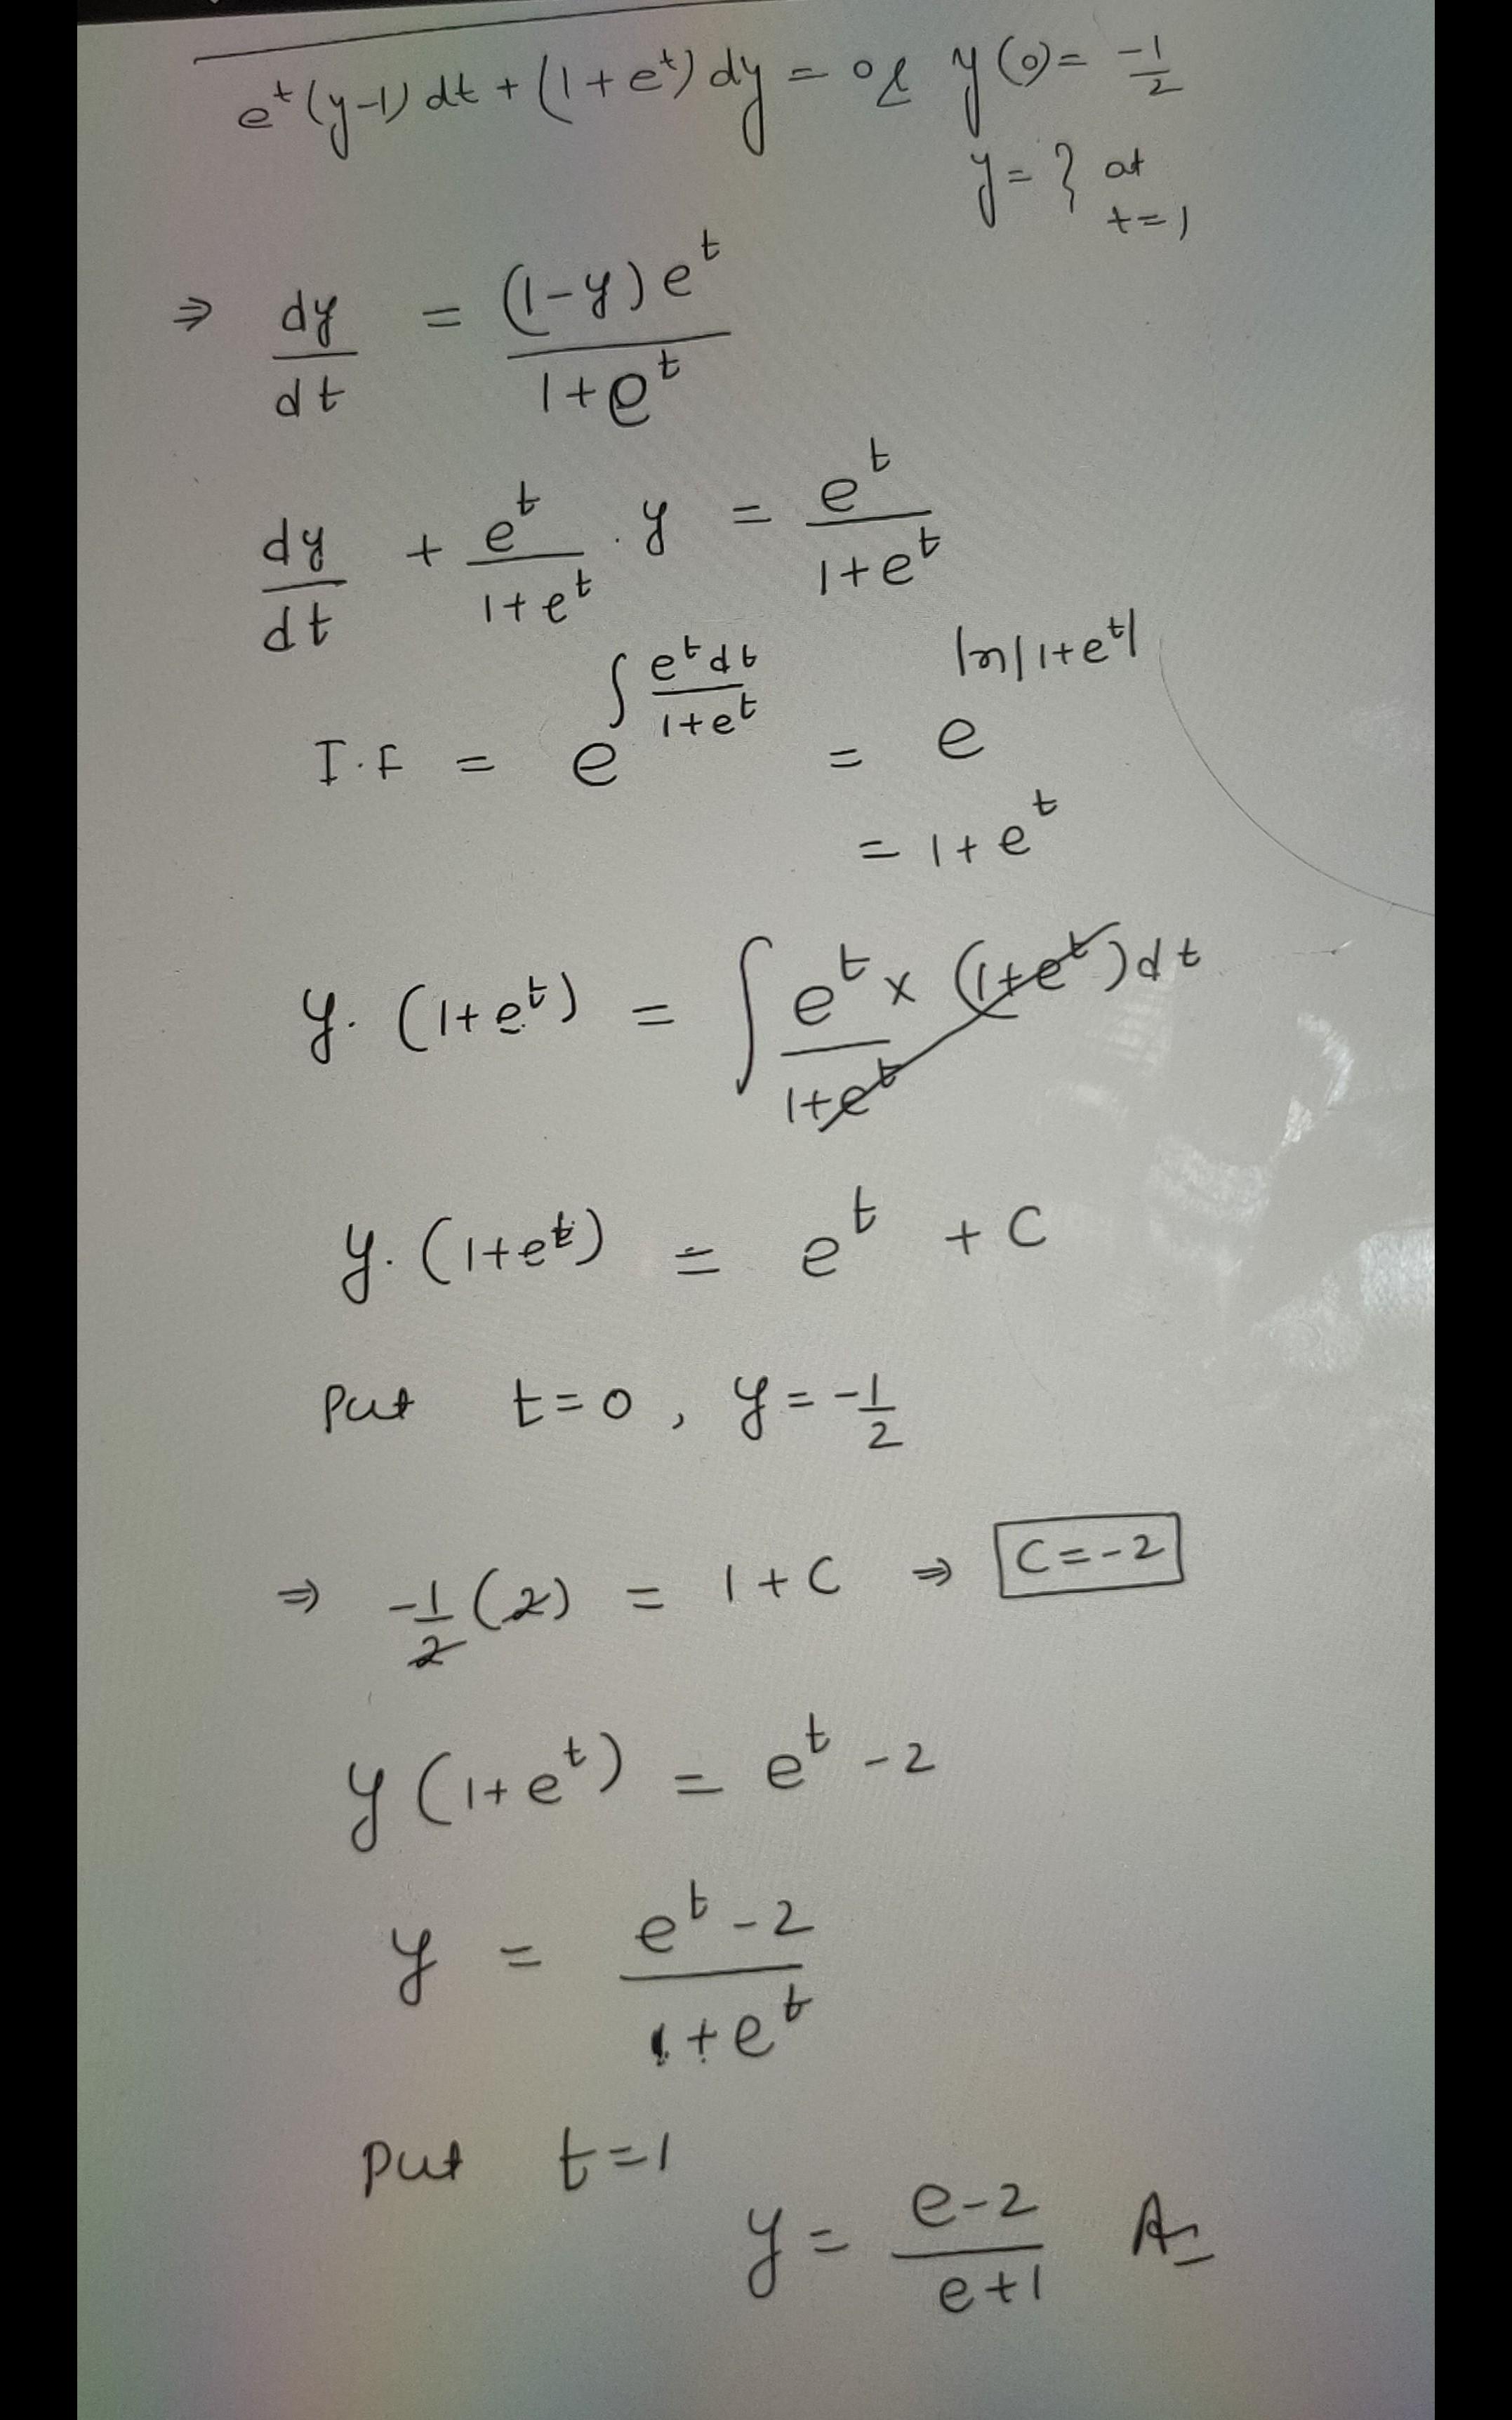 e^t(y-1)dt + (1+e^t)dy = 0 & y(0) = -1/2
y = ? at t=1
⇒ dy/dt = (1-y)e^t / 1+e^t
dy/dt + e^t/1+e^t . y = e^t/1+e^t
I.F = e^∫ e^t dt/1+e^t = e^ln|1+e^t|
= 1+e^t
y. (1+e^t) = ∫ e^t/1+e^t × (1+e^t)dt
y. (1+e^t) = e^t + C
Put t=0, y=-1/2
⇒ -1/2 (2) = 1+C ⇒ C=-2
y(1+e^t) = e^t - 2
y = e^t - 2 / 1+e^t
Put t=1
y = e-2/e+1 A